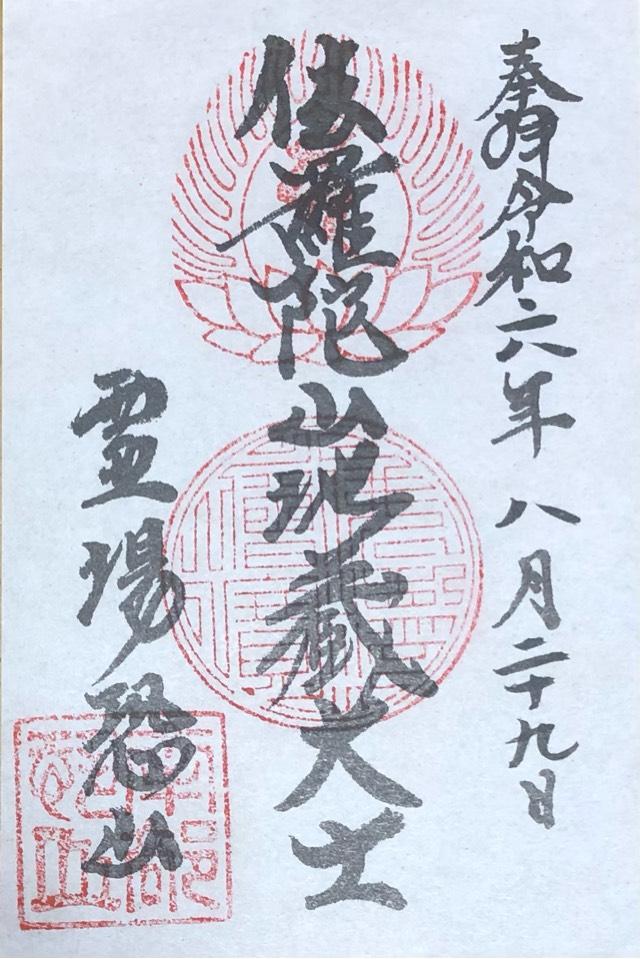 奉拝 令和六年 八月二十九日
伽羅陀山地蔵大士
霊場恐山